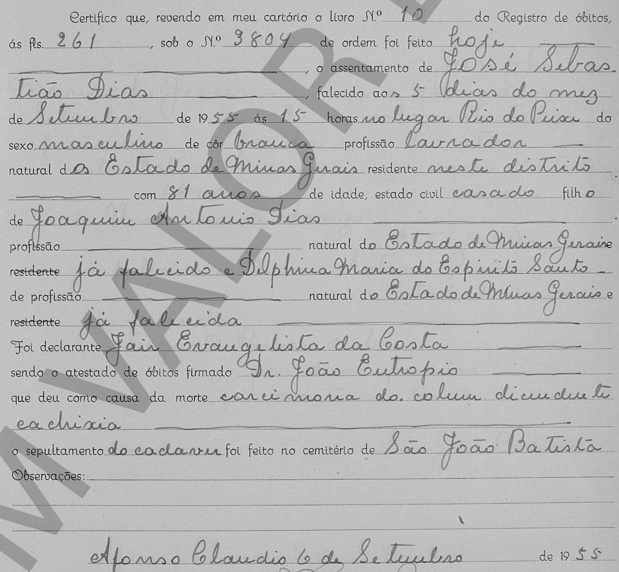 Certifico que, revendo em meu cartório o livro N.º 10 do Registro de óbitos,
ás fls. 261, sob o N.º 3804 de ordem foi feito hoje
, o assentamento de José Sebas-
tião Dias, falecido aos 5 dias do mez
de Setembro de 1955 ás 15 horas no lugar Rio do Peixe do
sexo masculino de côr branca profissão Lavrador
natural do Estado de Minas Gerais residente neste distrito
com 81 anos de idade, estado civil casado filho
de Joaquim Antonio Dias
profissão natural do Estado de Minas Gerais e
residente já falecido e Delphina Maria do Espirito Santo
de profissão natural do Estado de Minas Gerais e
residente já falecida
Foi declarante Jair Evangelista da Costa
sendo o atestado de óbitos firmado Dr. João Eutropio
que deu como causa da morte carcimona do colum dicendente
cachixia
o sepultamento do cadaver foi feito no cemitério de São João Batista
Observações:
Afonso Claudio 6 de Setembro de 1955
M VALOR